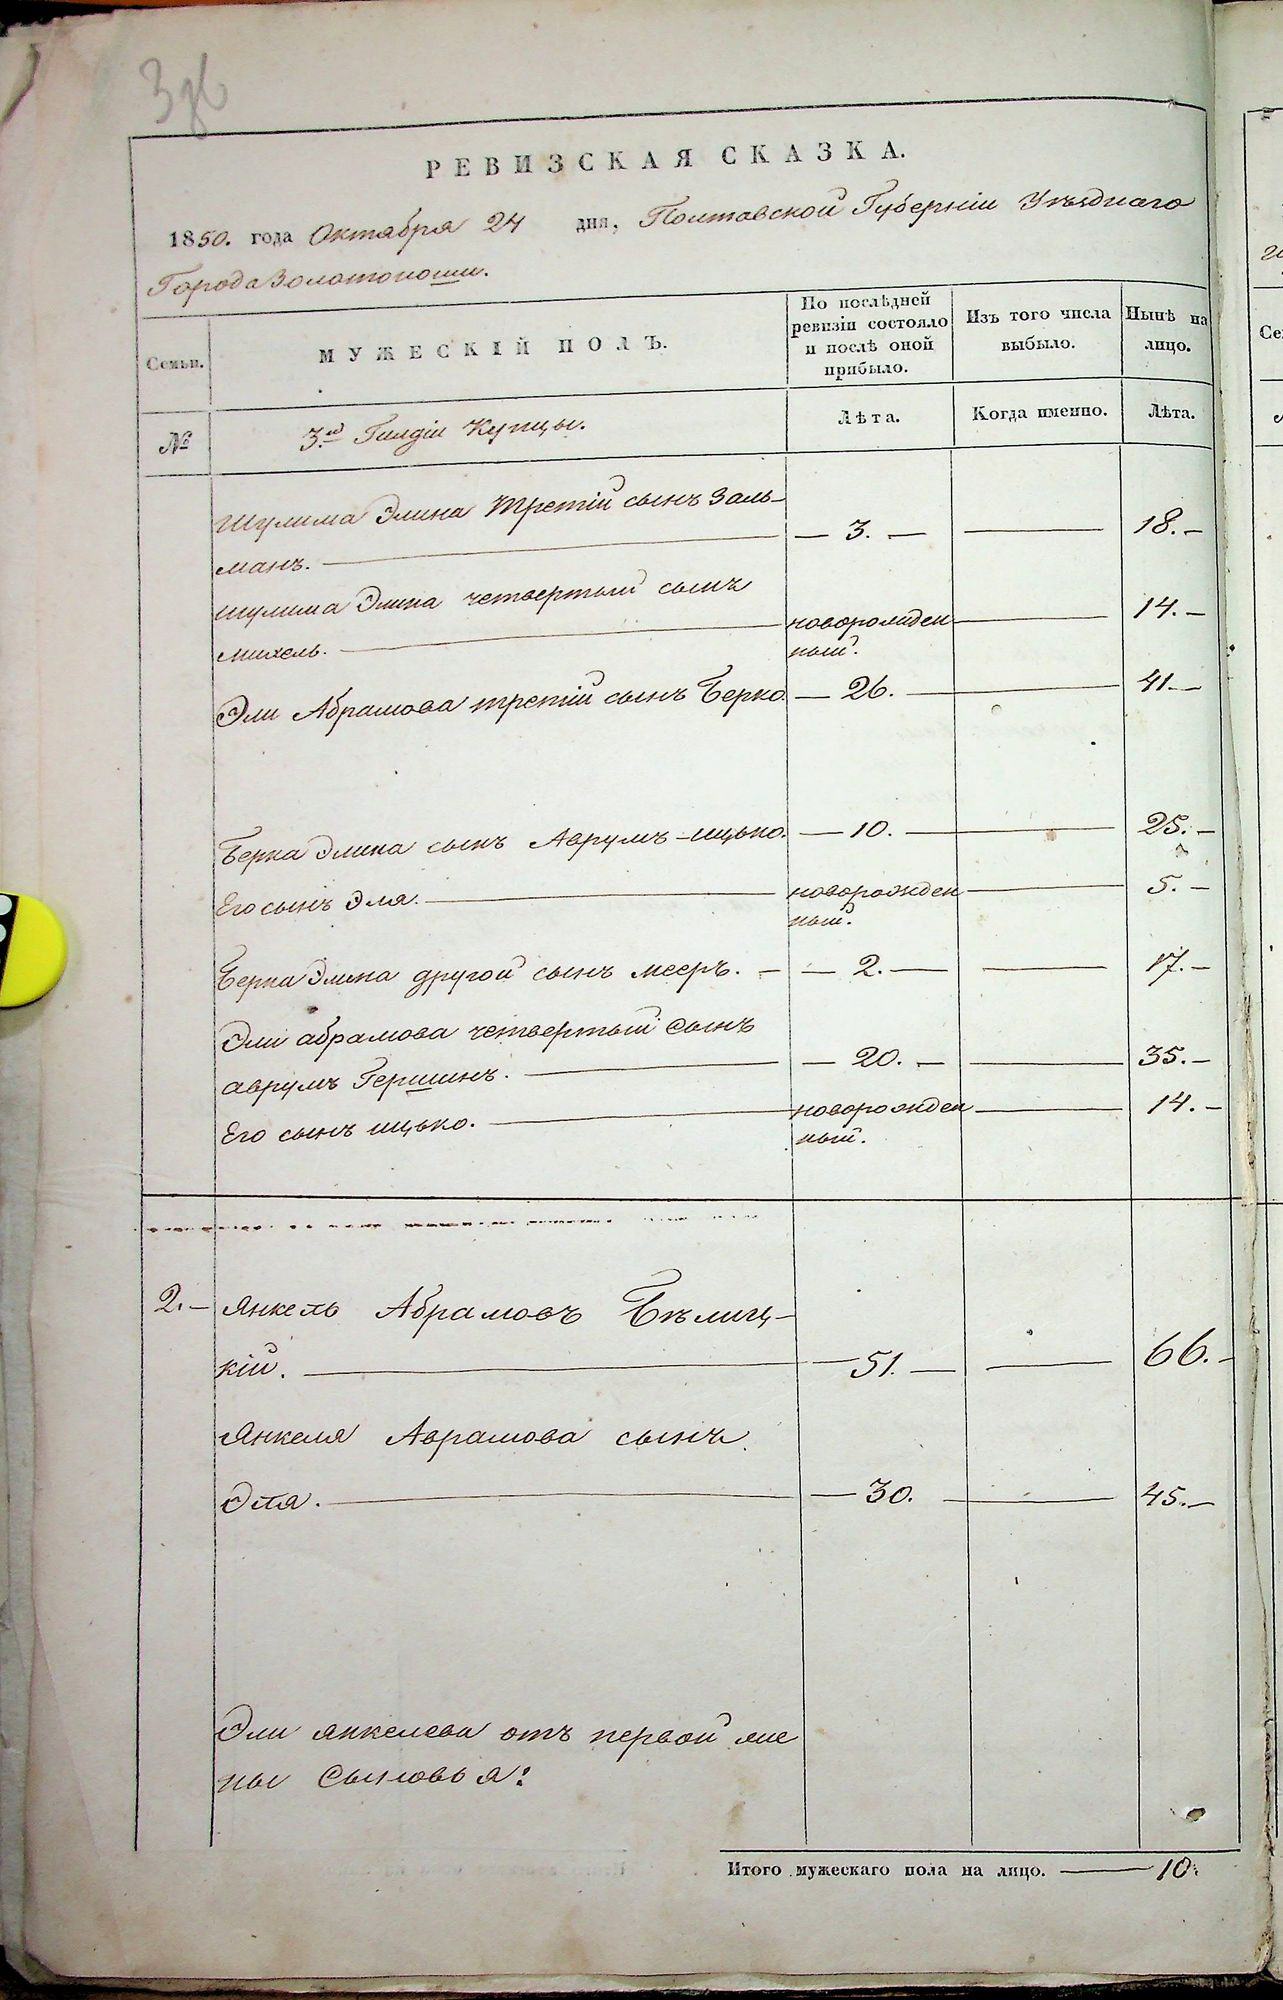 РЕВИЗСКАЯ СКАЗКА.
1850. года Октября 24 дня, Полтавской Губерніи Уѣзднаго
Города Золотоноши.
Семьи.
МУЖЕСКІЙ ПОЛЪ.
По послѣдней
ревизіи состояло
и послѣ оной
прибыло.
Изъ того числа
выбыло.
Нынѣ на
лицо.
№
3.ей Гилдіи Купцы.
Лѣта.
Когда именно.
Лѣта.
Шулима Элина Третій сынъ Заль-
манъ. — 3. — 18. —
Шулима Элина четвертый сынъ
Михель. новорожден 14. —
ный.
Эли Абрамова третій сынъ Берко. — 26. — 41. —
Берка Элина сынъ Аврумъ-Ицько. — 10. — 25. —
Его сынъ Эля. новорожден 5. —
ный.
Берка Элина другой сынъ Мееръ. — 2. — 17. —
Эли Абрамова четвертый Сынъ
Аврумъ Гершинъ. — 20. — 35. —
Его сынъ Ицько. новорожден 14. —
ный.
2. — Янкель Абрамовъ Бѣлиц-
кій. — 51. — 66. —
Янкеля Аврамова сынъ
Эля. — 30. — 45. —
Эли Янкелева отъ первой же
ны Сыновья:
Итого мужескаго пола на лицо. — 10.